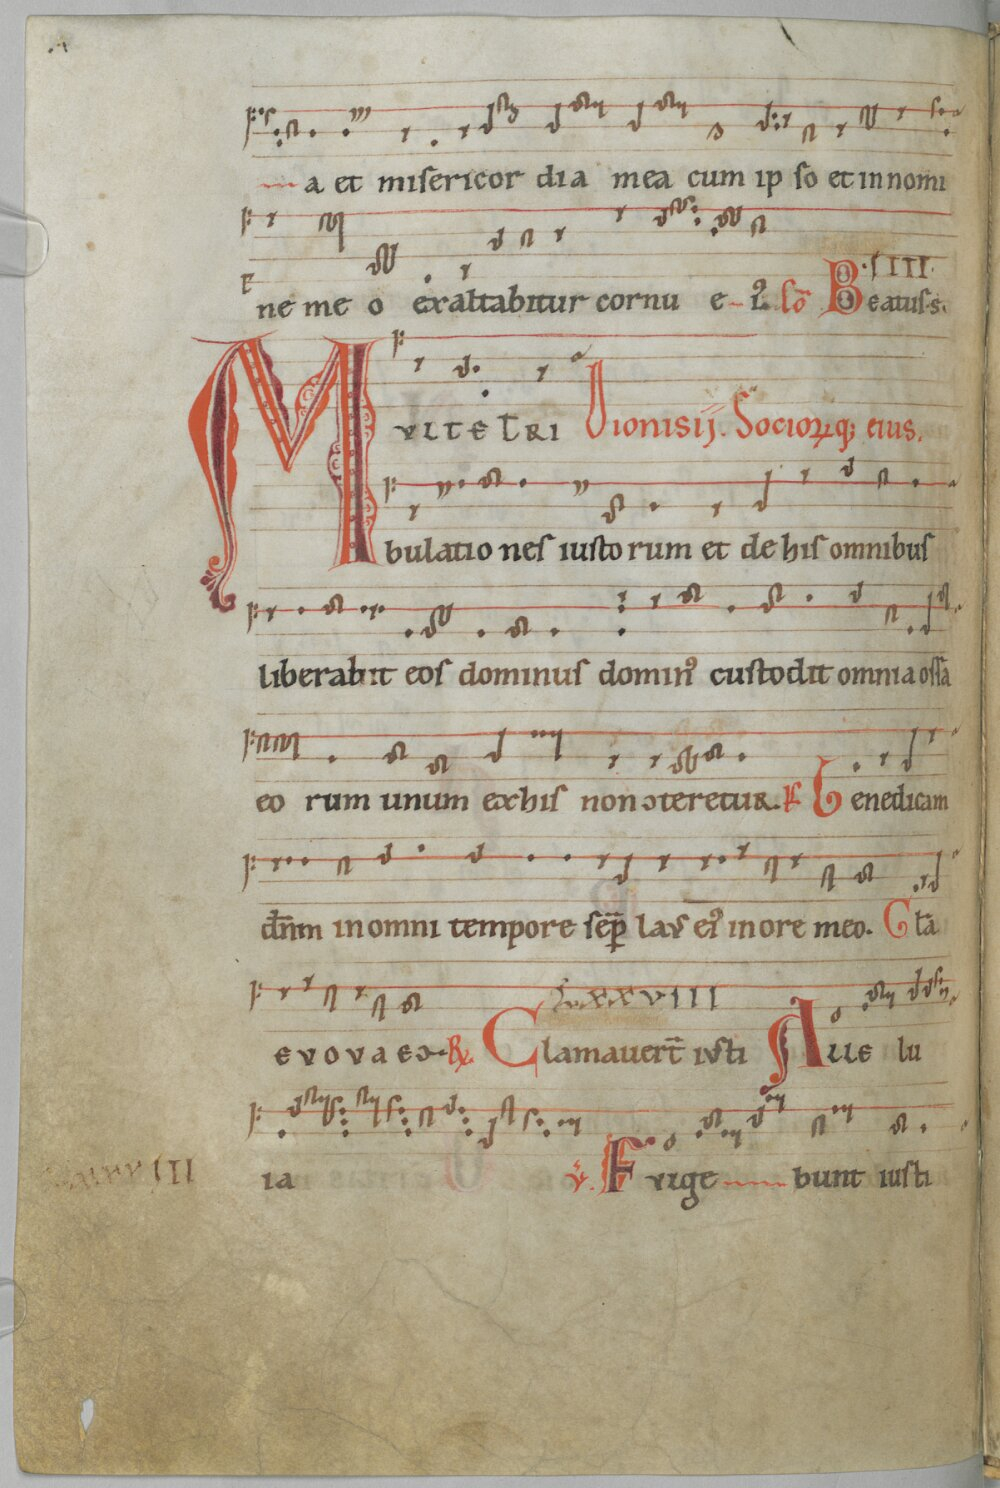 a et misericor dia mea cum ip so et in nomi
ne me o exaltabitur cornu e iꝰ Cō Beatus s.
MVLTE TRI Dionisij. Sociorꝝq; eius.
bulatio nes iusto rum et de his omnibus
liberabit eos dominus dominꝰ custodit omnia ossa
eo rum unum ex his non ɔteretur. Ps Benedicam
dn̄m in omni tempore semp̄ laus eiꝰ in ore meo. Gl̄a
EVOVAE ℟. Clamauerūt iusti Alle lu
ia ℣. Fulge bunt iusti